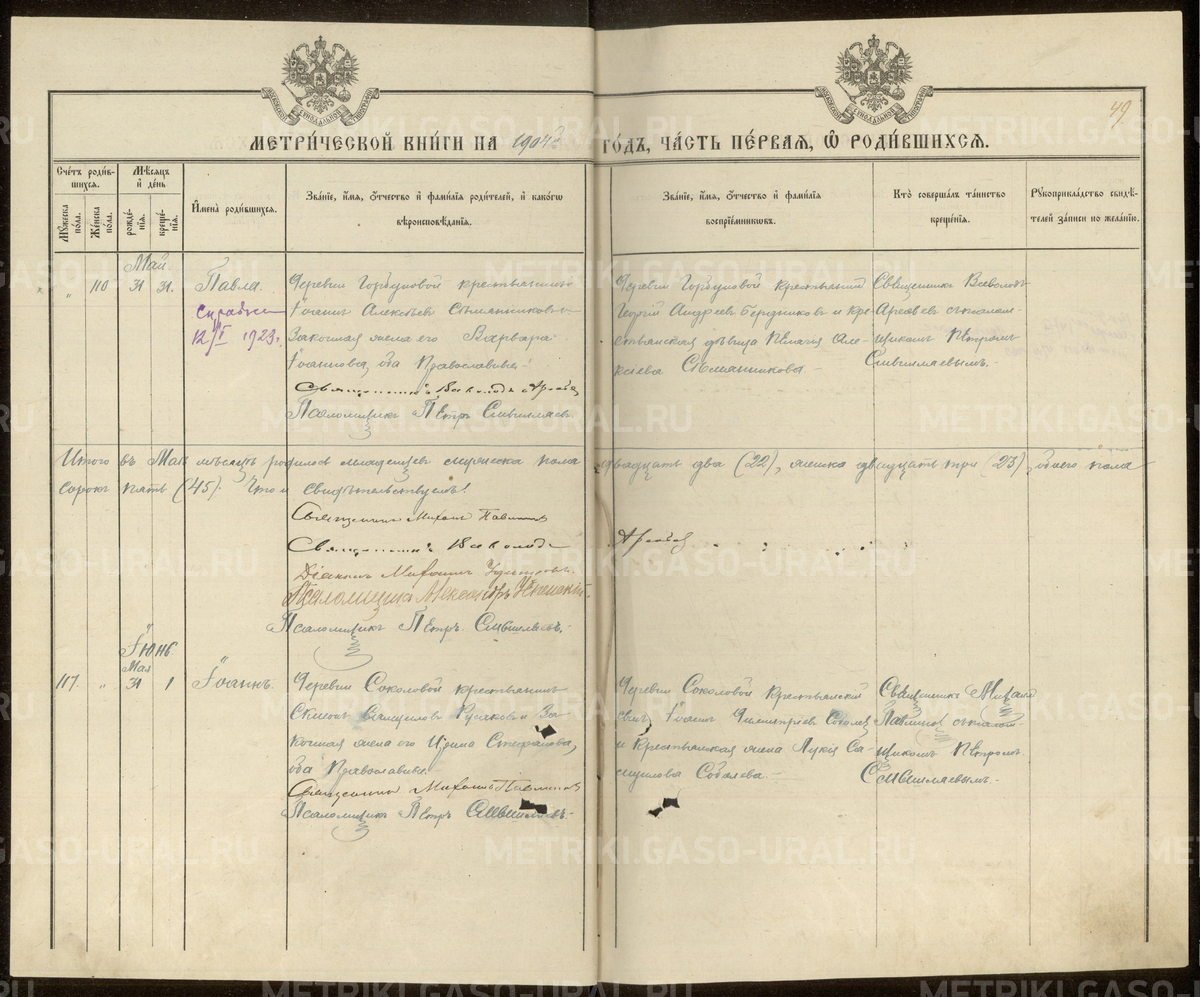 49
МЕТРИ́ЧЕСКОЙ КНИ́ГИ НА 1904й ГО́ДЪ, ЧА́СТЬ ПЕ́РВАЯ, Ѡ҆ РОДИ́ВШИХСЯ.
Сче́тъ роди́вшихся.
Мꙋ́жеска по́ла.
Же́нска по́ла.
Мѣ́сяцъ и҆ де́нь
рожде́нїя.
креще́нїя.
И҆мена̀ роди́вшихся.
Зва́нїе, и҆́мя, ѻ҆́тчество и҆ фами́лїя роди́телей, и҆ како́гѡ вѣроисповѣ́данїя.
Зва́нїе, и҆́мя, ѻ҆́тчество и҆ фами́лїя воспрїе́мниковъ.
Кто̀ соверша́лъ та́инство креще́нїя.
Рꙋкоприкла́дство свидѣ́телей за́писи по жела́нїю.
Май
" 110 31 31.
Павла.
Справка
12/VI 1923 г.
Деревни Горбуновой крестьянинъ
Іоаннъ Алексѣевъ Сѣманниковъ и
Законная жена его Варвара
Іоаннова, оба Православные.
Священникъ Всеволодъ Арефьевъ
Псаломщикъ Петръ Смышляевъ.
Деревни Горбуновой крестьянинъ
Георгій Андреевъ Бердниковъ и кре-
стьянская дѣвица Пелагія Але-
ксѣева Сѣманникова.-
Священникъ Всеволодъ
Арефьевъ съ псалом-
щикомъ Петромъ
Смышляевымъ.-
Итого въ Маѣ мѣсяцѣ родилось младенцевъ мужеска пола двадцать два (22), женска двадцать три (23), обоего пола
сорокъ пять (45). Что и свидѣтельствуемъ:
Священникъ Михаилъ Павлиновъ
Священникъ Всеволодъ Арефьевъ
Діаконъ Михаилъ
Псаломщикъ Александръ
Псаломщикъ Петръ Смышляевъ.
Іюнь
Мая
117. " 31 1
Іоаннъ.
Деревни Соколовой крестьянинъ
Симеонъ Русаковъ и За-
конная жена его Ирина Стефанова,
оба Православные.
Священникъ Михаилъ Павлиновъ
Псаломщикъ Петръ Смышляевъ.
Деревни Соколовой Крестьянскій
сынъ Іоаннъ Димитріевъ
и Крестьянская жена Лукія Са-
муилова Соболева.-
Священникъ Михаилъ
Павлиновъ съ псалом-
щикомъ Петромъ
Смышляевымъ.-
METRIKI.GASO-URAL.RU